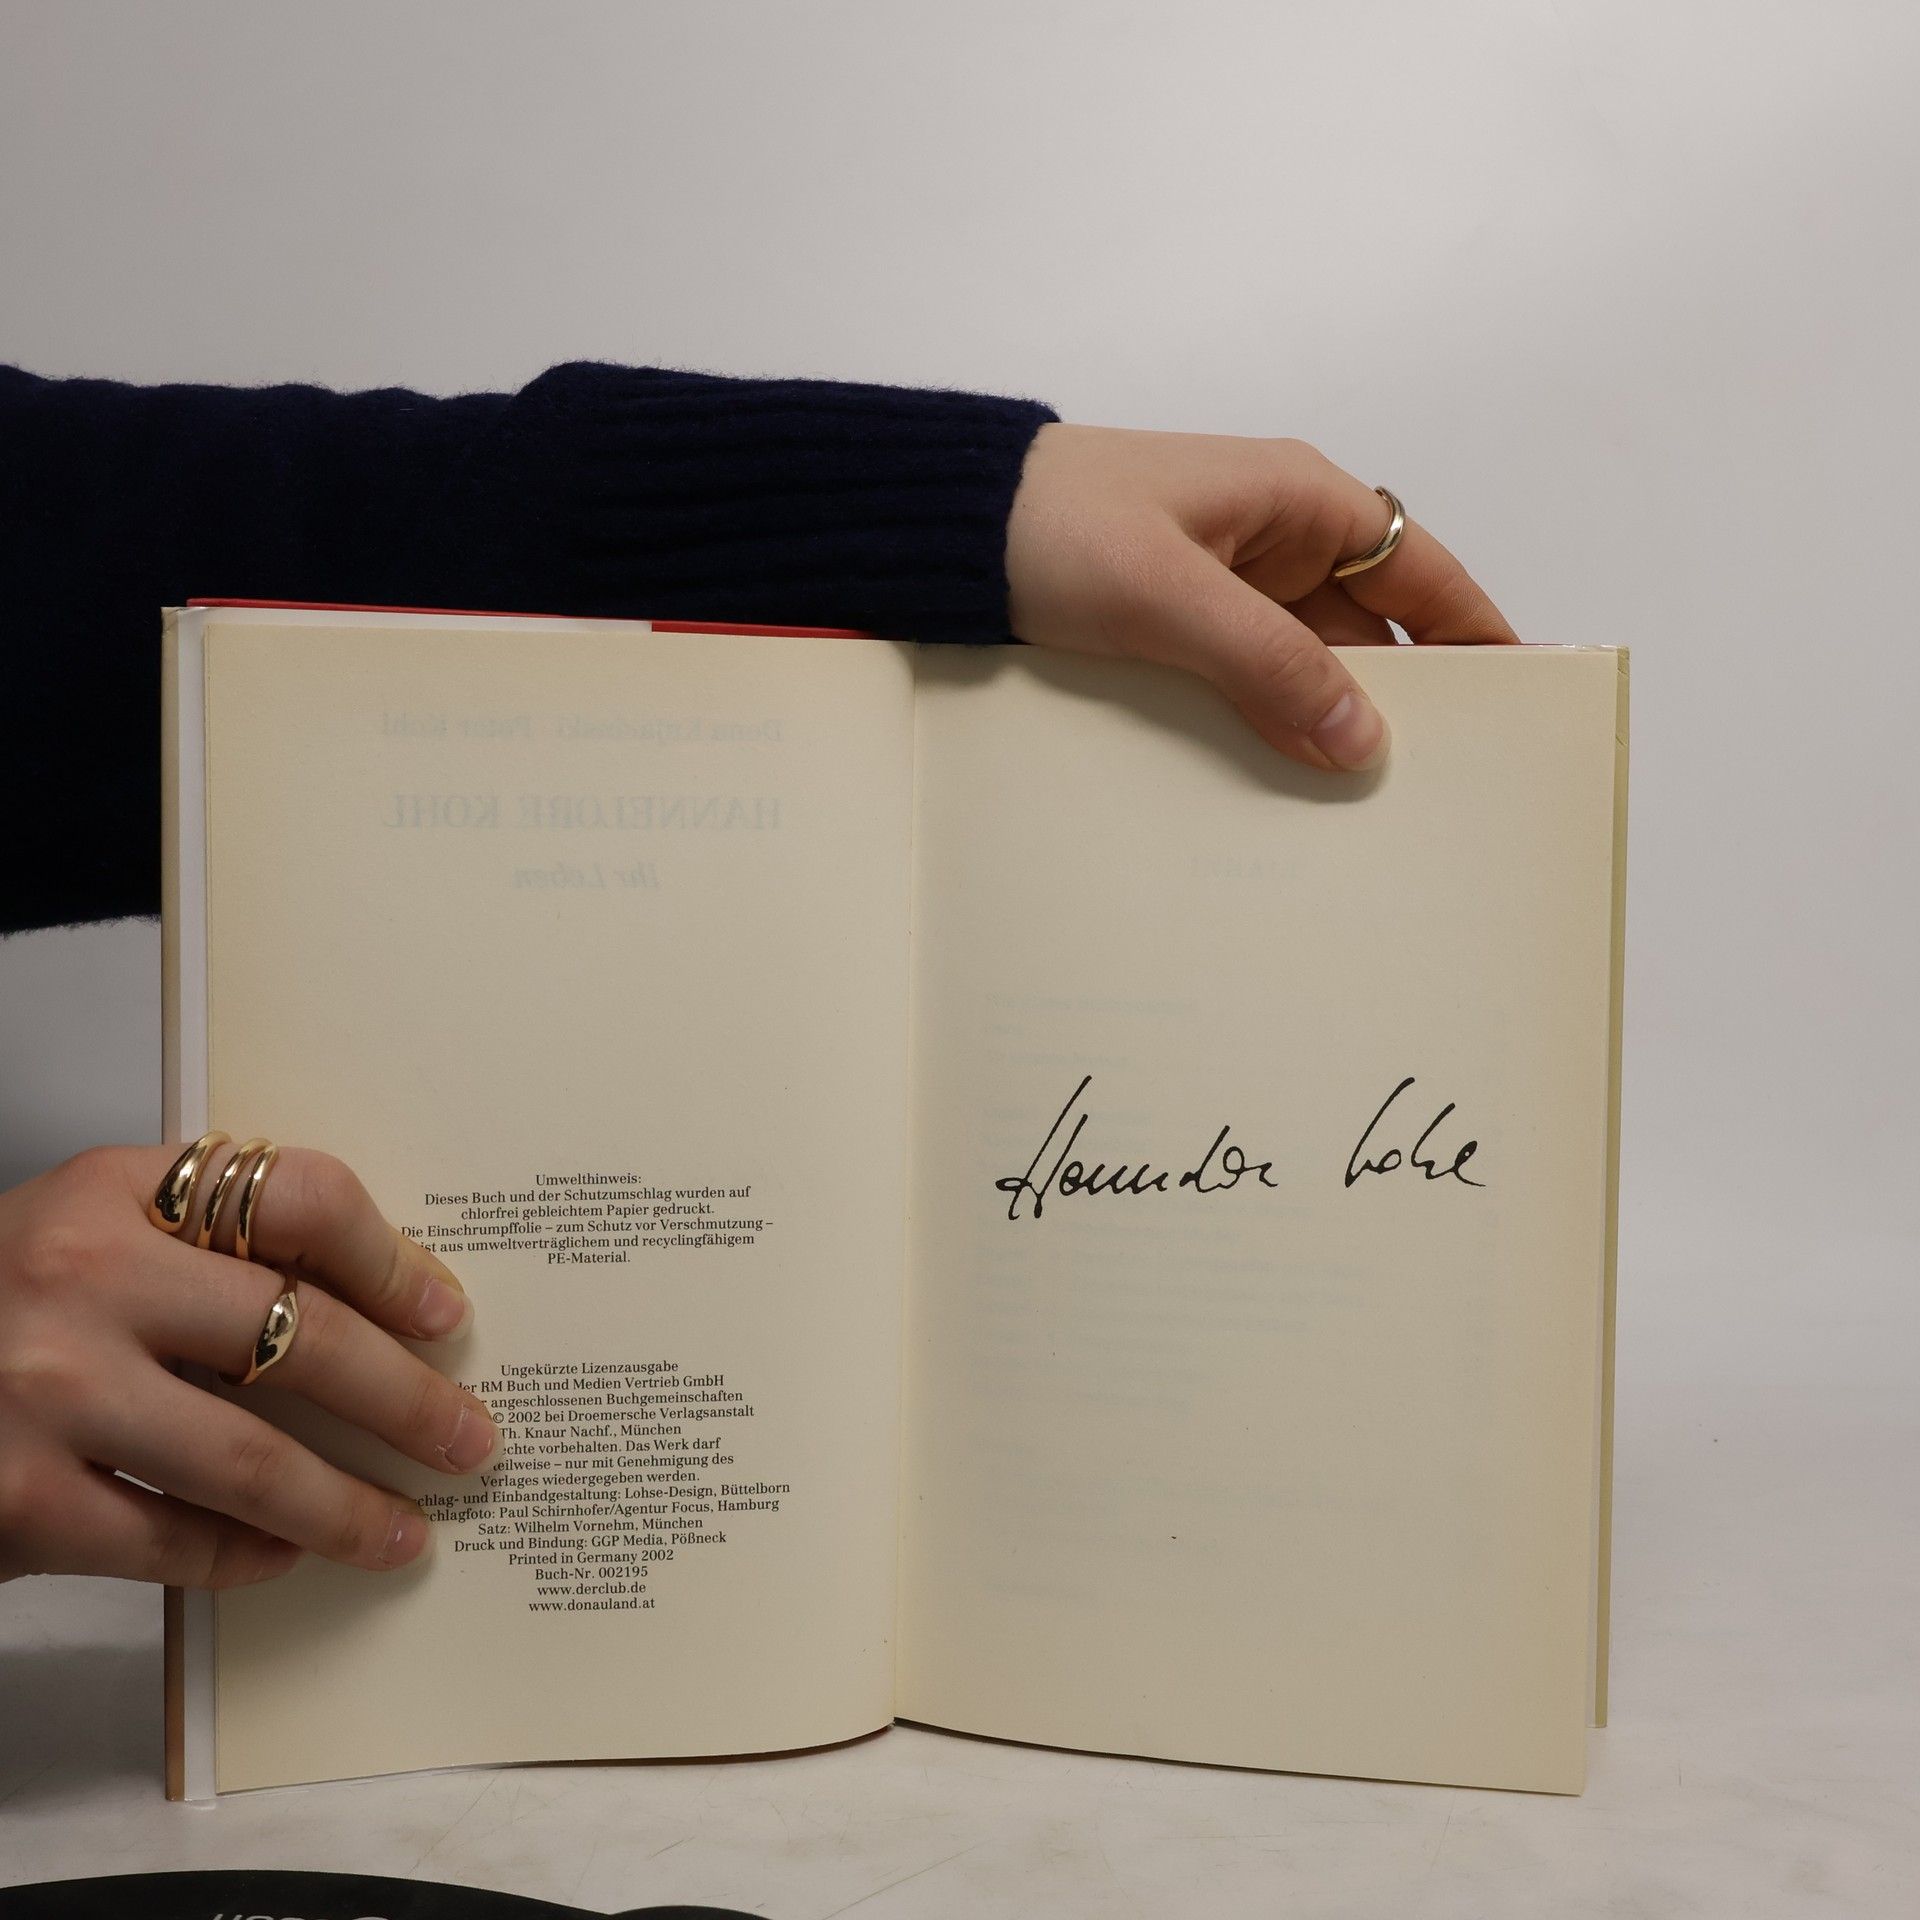 Dona Kujacinski Peter Kohl
HANNELORE KOHL
Ihr Leben
Umwelthinweis:
Dieses Buch und der Schutzumschlag wurden auf
chlorfrei gebleichtem Papier gedruckt.
Die Einschrumpffolie – zum Schutz vor Verschmutzung –
ist aus umweltverträglichem und recyclingfähigem
PE-Material.
Ungekürzte Lizenzausgabe
der RM Buch und Medien Vertrieb GmbH
angeschlossenen Buchgemeinschaften
© 2002 bei Droemersche Verlagsanstalt
Th. Knaur Nachf., München
echte vorbehalten. Das Werk darf
teilweise – nur mit Genehmigung des
Verlages wiedergegeben werden.
schlag- und Einbandgestaltung: Lohse-Design, Büttelborn
schlagfoto: Paul Schirnhofer/Agentur Focus, Hamburg
Satz: Wilhelm Vornehm, München
Druck und Bindung: GGP Media, Pößneck
Printed in Germany 2002
Buch-Nr. 002195
www.derclub.de
www.donauland.at
Hannelore Kohl